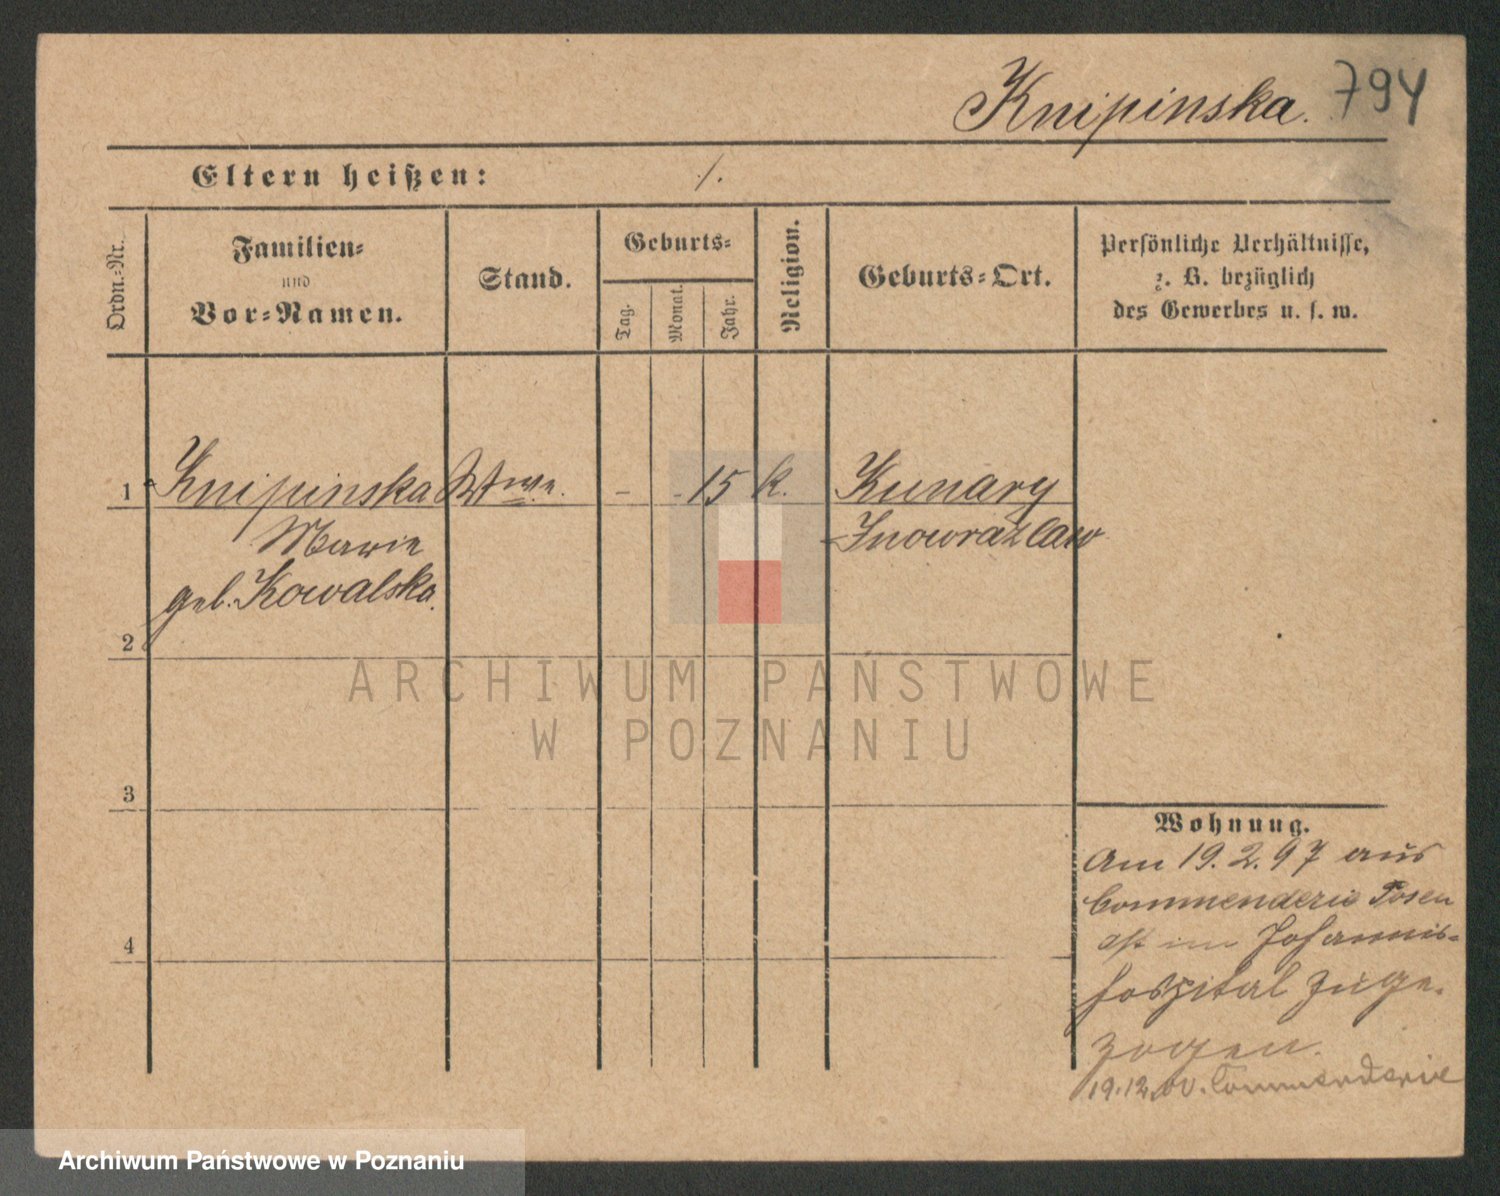 Knipinska. 794
Eltern heißen: /.
Ordn.-Nr.
Familien-
und
Vor-Namen.
Stand.
Geburts-
Tag.
Monat.
Jahr.
Religion.
Geburts-Ort.
Persönliche Verhältnisse,
z. B. bezüglich
des Gewerbes u. s. w.
1 Knipinska Wwe. - - 15 k. Kunary
Marie Inowrazlaw
geb. Kowalska.
2
ARCHIWUM PAŃSTWOWE
W POZNANIU
3
Wohnung.
Am 19.2.97 aus
Commenderie Posen
Ost im Johannis-
hospital zuge-
zogen.
4
19.12.00. Commenderie
Archiwum Państwowe w Poznaniu